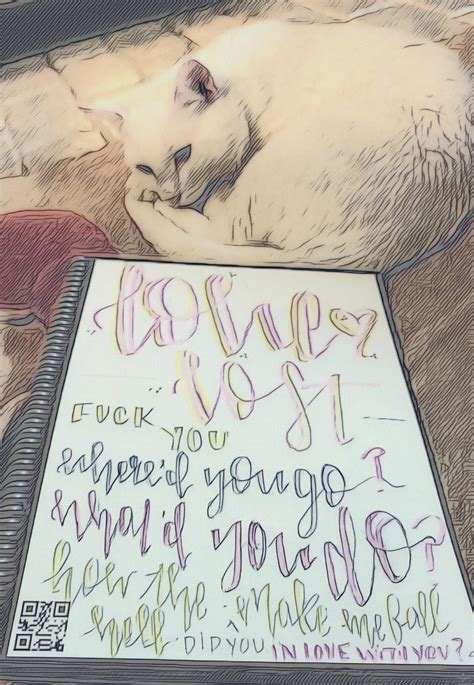 lost
FUCK
YOU
where'd you go?
what'd you do?
how the
hell DID YOU make me fall
IN LOVE WITH YOU?